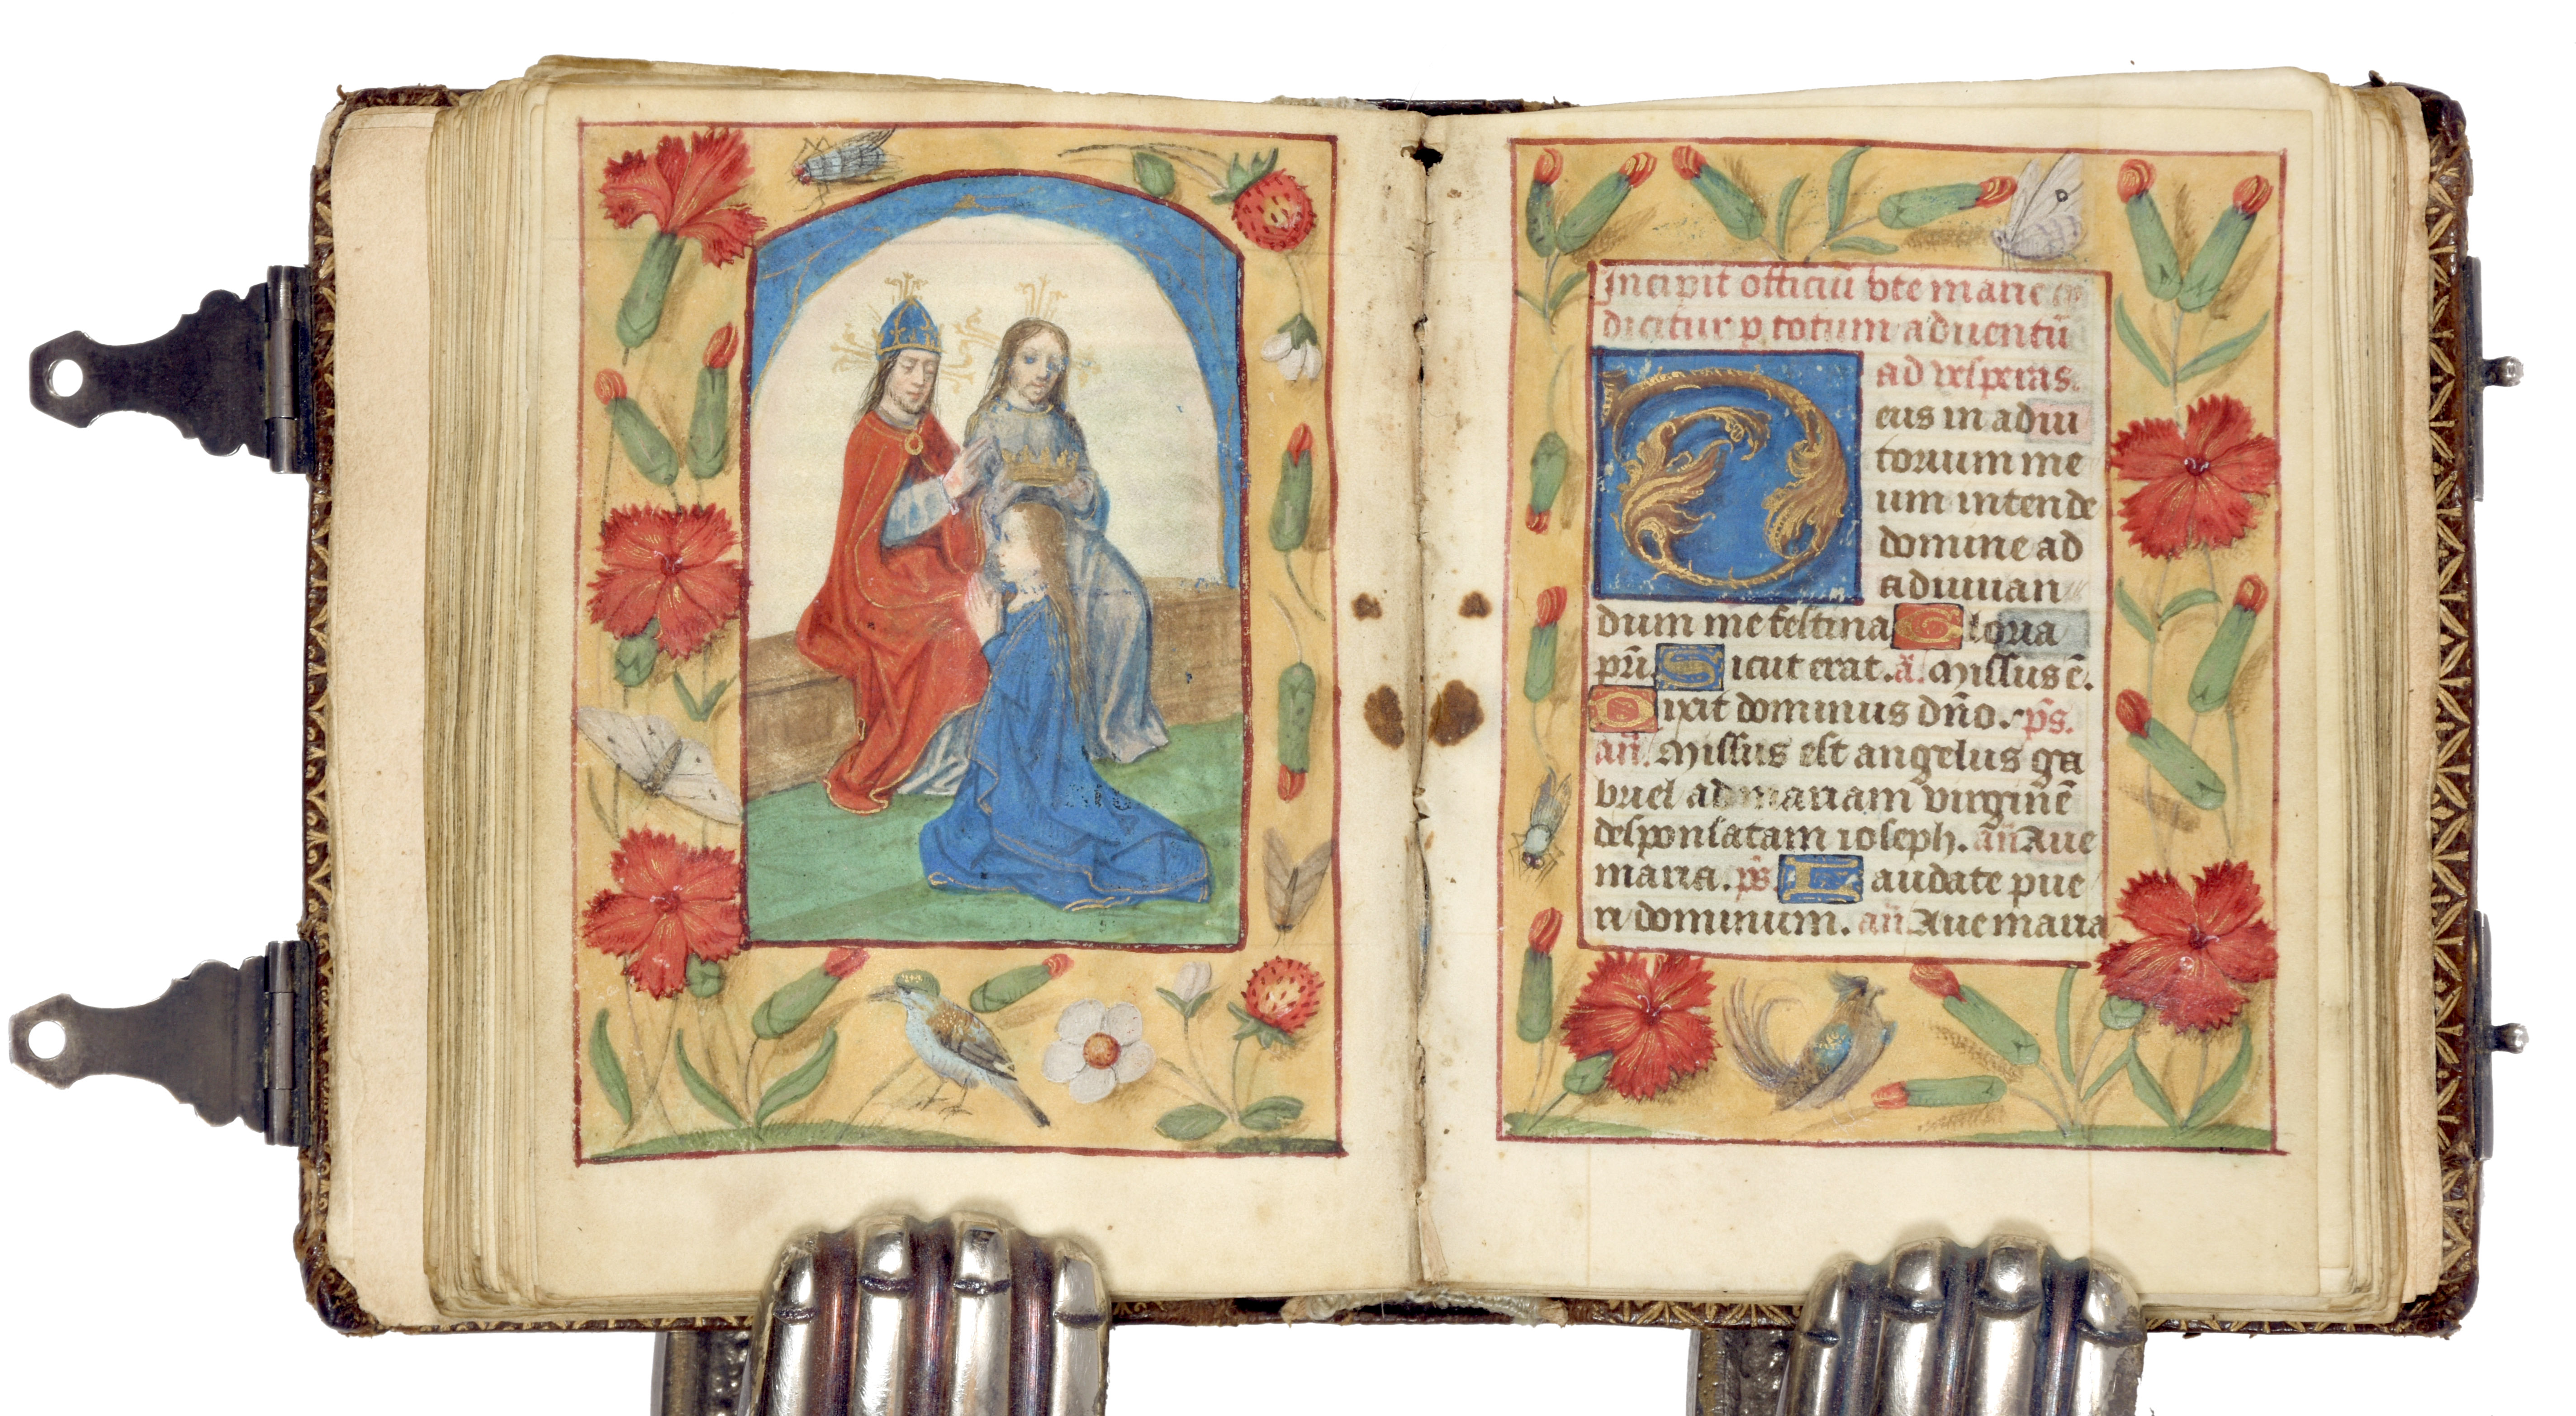 Incipit officiū bte marie
dicitur p totum aduentū
ad vesperas.
Deus in adiu
torium me
um intende
domine ad
adiuuan
dum me festina Gloria
pr̄i. Sicut erat. ā. Missus ē.
Dixit dominus dn̄o. ps̄.
an̄. Missus est angelus ga
briel ad mariam virginē
desponsatam ioseph. an̄ Aue
maria. ps̄. Laudate pue
ri dominum. an̄. Aue maria